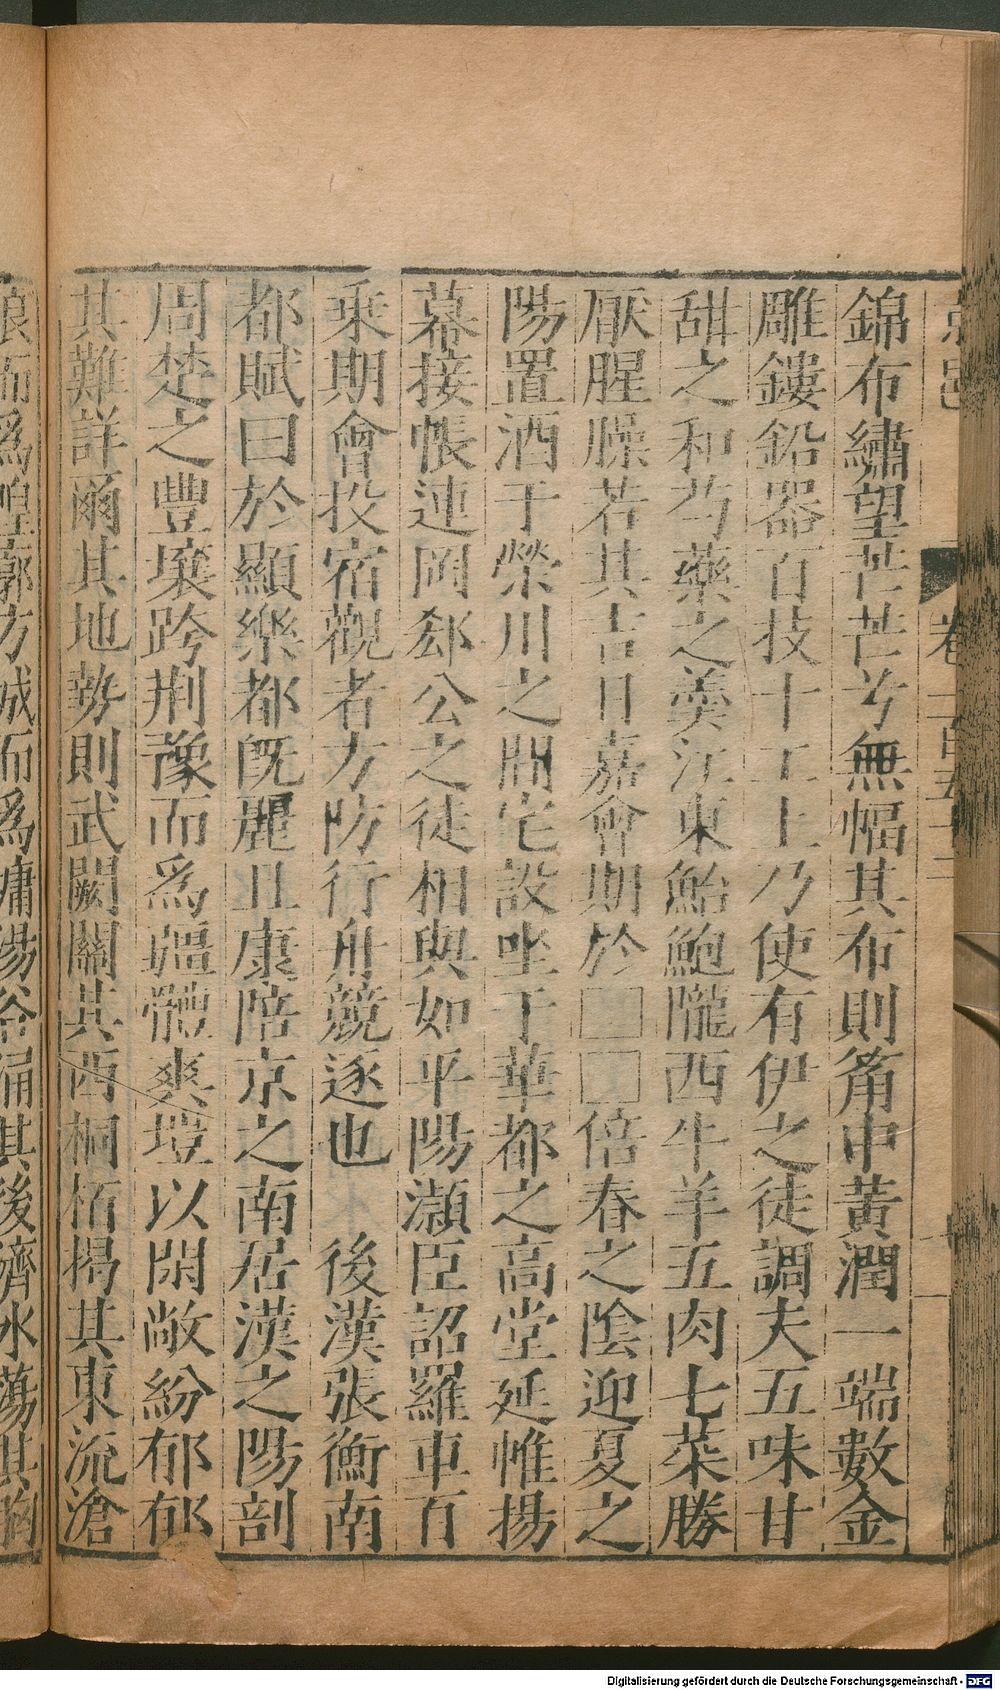 錦布繡望芒芒兮無幅其布則筩中黃潤一端數金
雕鏤鉛器百技十工上乃使有伊之徒調夫五味甘
甜之和芍藥之羹江東鮐鮑隴西牛羊五肉七菜勝
厭腥臊若其吉日嘉會期於□□倍春之陰迎夏之
陽置酒于滎川之閒宅設坐于華都之高堂延帷揚
幕接帳連岡郄公之徒相與如平陽灝臣詔羅車百
乘期會投宿觀者方防行舟競逐也　後漢張衡南
都賦曰於顯樂都旣麗且康陪京之南居漢之陽剖
周楚之豐壤跨荆豫而爲疆體爽塏以閑敞紛郁郁
其難詳爾其地勢則武闕關其西桐栢揭其東流滄
浪而爲隍廓方城而爲墉湯谷涌其後淯水蕩其胸
卷一百五十三
Digitalisierung gefördert durch die Deutsche Forschungsgemeinschaft - DFG